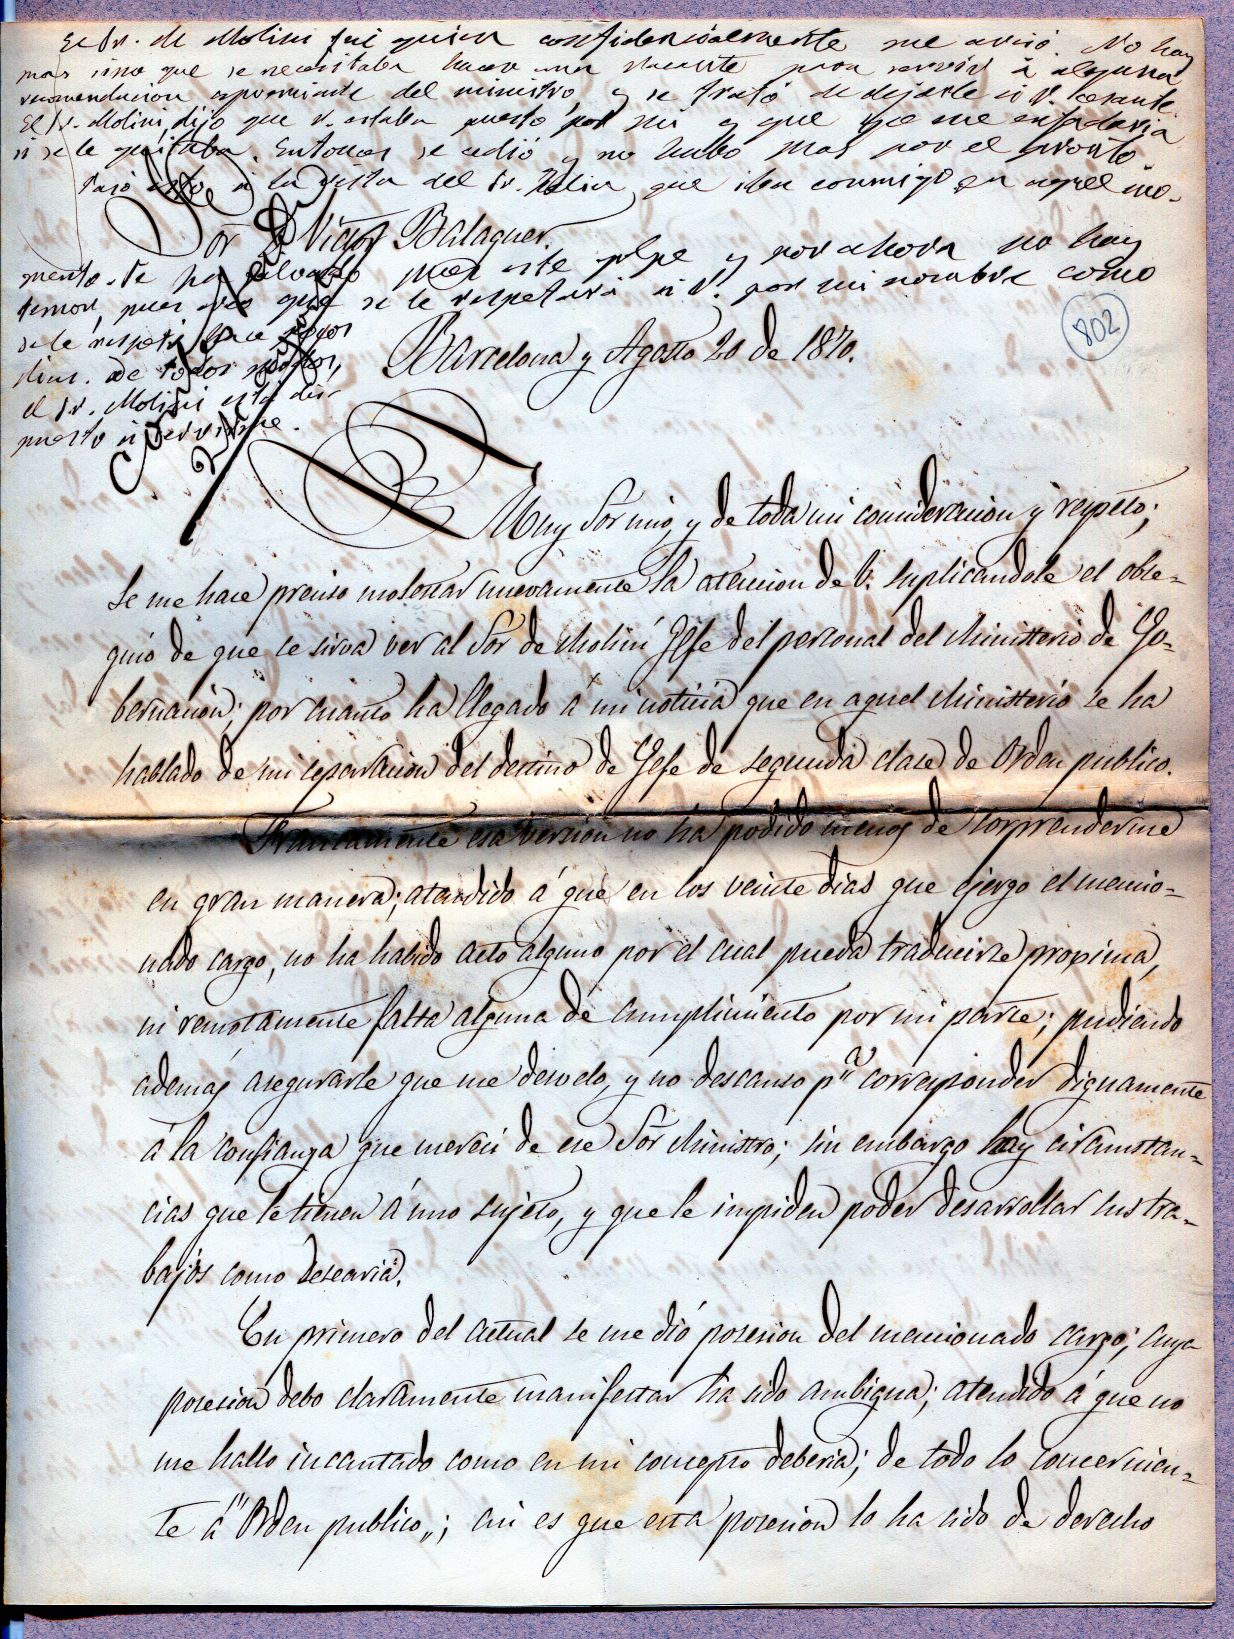 El Sr. de Molini fué quien confidencialmente me avisó. No hay
mas sino que se necesitaba hacer una vacante para servir á alguna
recomendacion apremiante del ministro, y se trató de dejarle á V. cesante.
El Sr. Molini dijo que V. estaba puesto por mi y que yo me enfadaria
si se le quitaba. Entonces se cedió y no hubo mas por el pronto.
Pasó esto á la vista del Sr. que iba conmigo en aquel mo-
Sor D. Victor Balaguer.
mento. Se ha salvado pues este golpe y por ahora no hay
temor, pues creo que se le respetará á V. por mi nombre como
se le respetó hace pocos
dias. De todos modos,
el Sr. Molini está dis-
puesto á servirme.
802
Barcelona y Agosto 20 de 1870.
Muy Sor mio, y de toda mi consideracion y respeto;
Se me hace preciso molestar nuevamente la atencion de V. suplicandole el obse-
quio de que se sirva ver al Sor de Molini Gefe del personal del Ministerio de Go-
bernacion; por cuanto ha llegado á mi noticia que en aquel Ministerio se ha
hablado de mi separacion del destino de Gefe de segunda clase de Orden publico.
Francamente esa version no ha podido menos de sorprenderme
en gran manera; atendido á que en los veinte dias que ejerzo el mencio-
nado cargo, no ha habido acto alguno por el cual pueda traducirse proxima,
ni remotamente falta alguna de cumplimiento por mi parte; pudiendo
ademas asegurarle que me desvelo, y no descanso pa corresponder dignamente
á la confianza que mereci de ese Sor Ministro; sin embargo hay circunstan-
cias que le tienen á uno sujeto, y que le impiden poder desarrollar sus tra-
bajos como desearia.
En primero del actual se me dió posesion del mencionado cargo; cuya
posesion debo claramente manifestar ha sido ambigua; atendido á que no
me hallo incautado como en mi concepto deberia; de todo lo concernien-
te á "Orden publico"; asi es que esta posesion lo ha sido de derecho